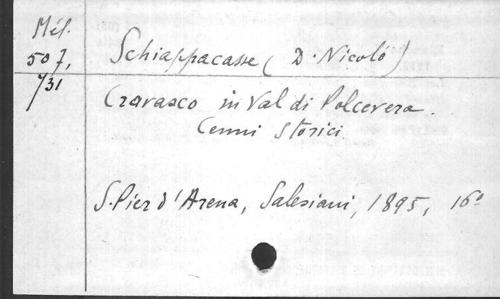 Mél.
507,
/31
Schiappacasse (D. Nicoló)
Cravasco in Val di Polcevera.
Cenni Storici
S. Pier d'Arena, Salesiani, 1895, 16º